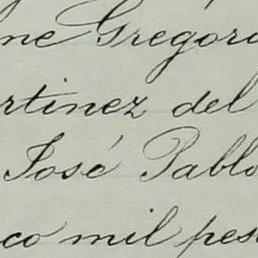 ne Gregori
rtinez del
José Pablo
co mil pes